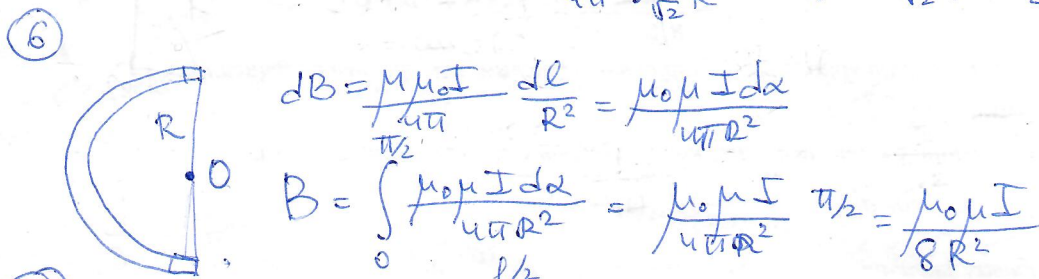 6
R
O
dB = μμ₀I/4π dl/R² = μ₀μIdα/4πR²
B = ∫₀^{π/2} μ₀μIdα/4πR² = μ₀μI/4πR² π/2 = μ₀μI/8R²